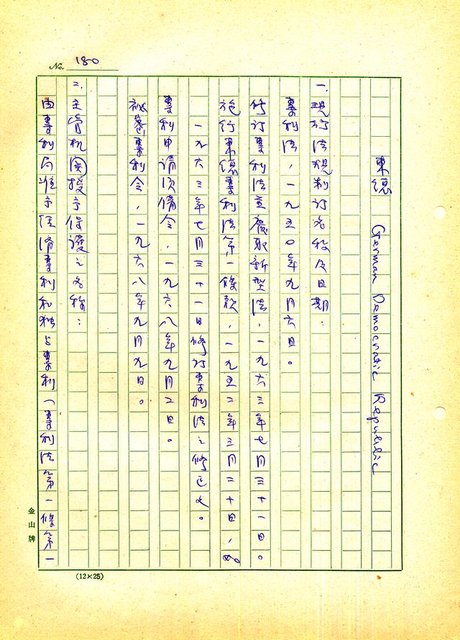 No. 180
東德 German Democratic Republic
一、現行法規制訂名稱及日期：
專利法，一九五〇年九月六日。
修訂專利法並廢取新型法，一九六三年七月三十一日。
施行東德專利法第一條款，一九五二年三月二十日，
一九六三年七月三十一日修訂專利法之修正文。
專利申請須備令，一九六八年九月二日。
秘密專利令，一九六八年九月九日。
二、主管机関授予保護之名稱：
由專利局准予經濟專利和獨占專利（專利法第一條第一
金山牌
(12×25)